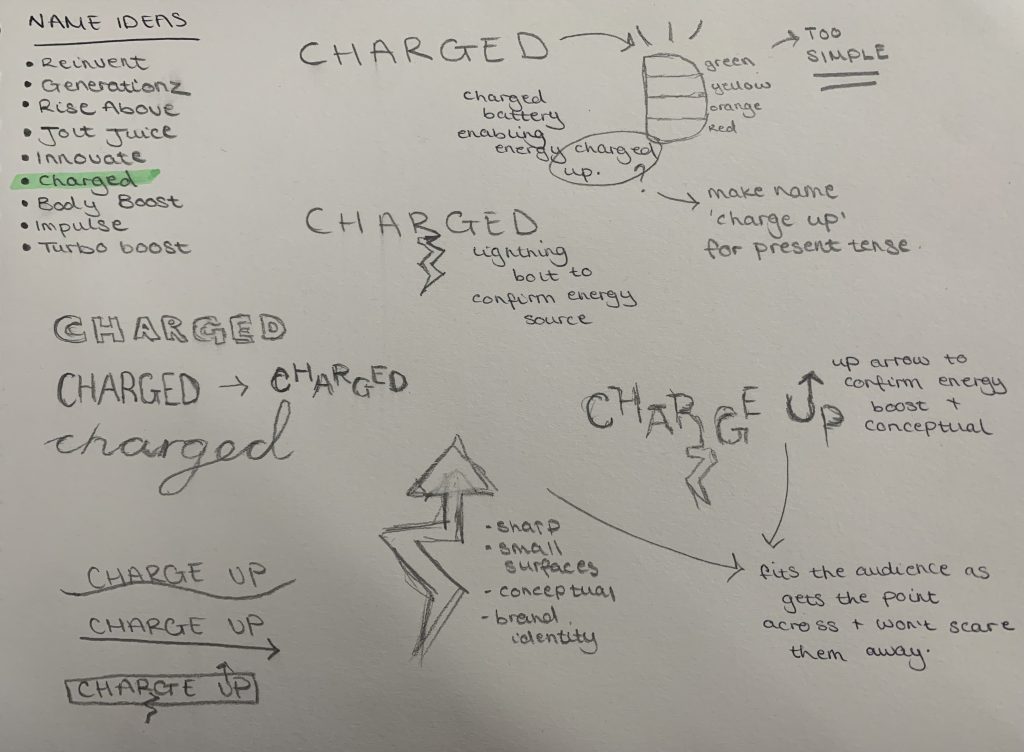 NAME IDEAS
• Reinvent
• Generationz
• Rise Above
• Jolt Juice
• Innovate
• Charged
• Body Boost
• Impulse
• Turbo boost
CHARGED
TOO
SIMPLE
green
yellow
orange
red
charged
battery
enabling
energy charged
up.
?
make name
'charge up'
for present tense.
CHARGED
lightning
bolt to
confirm energy
source
CHARGED
CHARGED → CHARGED
charged
CHARGE UP
up arrow to
confirm energy
boost +
conceptual
- sharp
- small
surfaces
- conceptual
- brand
identity
fits the audience as
gets the point
across + won't scare
them away.
CHARGE UP
CHARGE UP
CHARGE UP